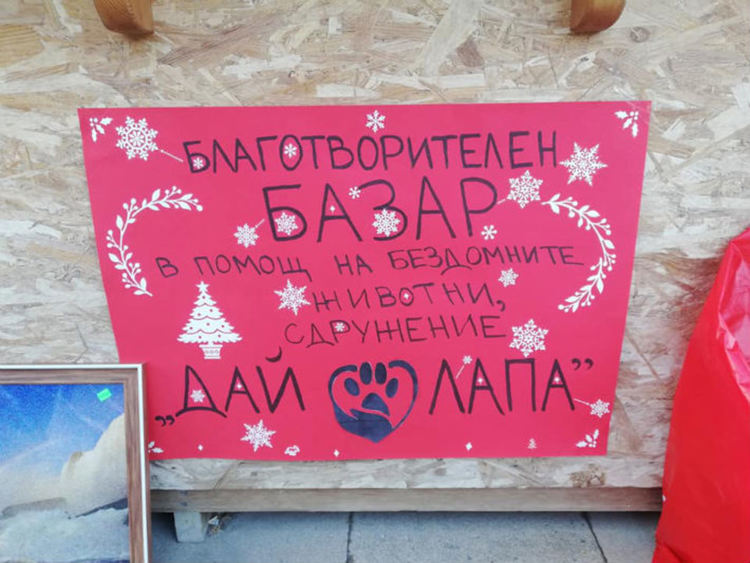 БЛАГОТВОРИТЕЛЕН
БАЗАР
В ПОМОЩ НА БЕЗДОМНИТЕ
ЖИВОТНИ,
СДРУЖЕНИЕ
„ДАЙ ЛАПА”